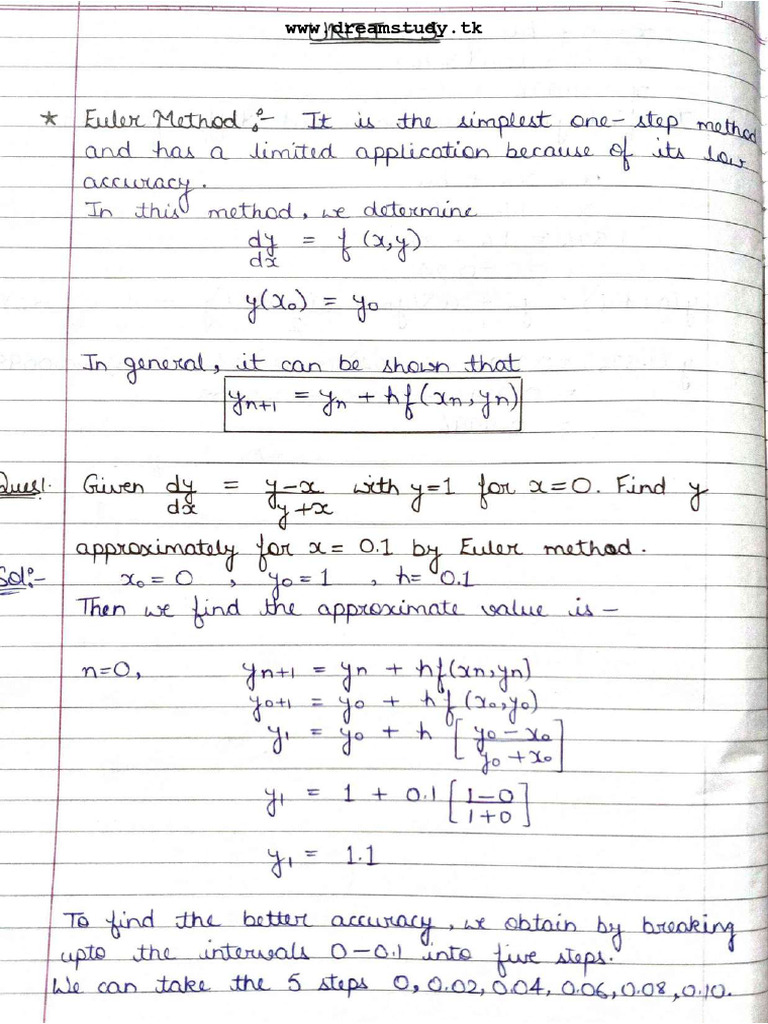 www.dreamstudy.tk
* Euler Method :- It is the simplest one-step method
and has a limited application because of its low
accuracy.
In this method, we determine
dy/dx = f(x,y)
y(x₀) = y₀
In general, it can be shown that
yₙ₊₁ = yₙ + hf(xₙ,yₙ)
Ques1. Given dy/dx = (y-x)/(y+x) with y=1 for x=0. Find y
approximately for x= 0.1 by Euler method.
Sol:- x₀=0 , y₀=1 , h= 0.1
Then we find the approximate value is -
n=0, yₙ₊₁ = yₙ + hf(xₙ,yₙ)
y₀₊₁ = y₀ + hf(x₀,y₀)
y₁ = y₀ + h [(y₀-x₀)/(y₀+x₀)]
y₁ = 1 + 0.1 [(1-0)/(1+0)]
y₁ = 1.1
To find the better accuracy, we obtain by breaking
upto the intervals 0-0.1 into five steps.
We can take the 5 steps 0, 0.02, 0.04, 0.06, 0.08, 0.10.